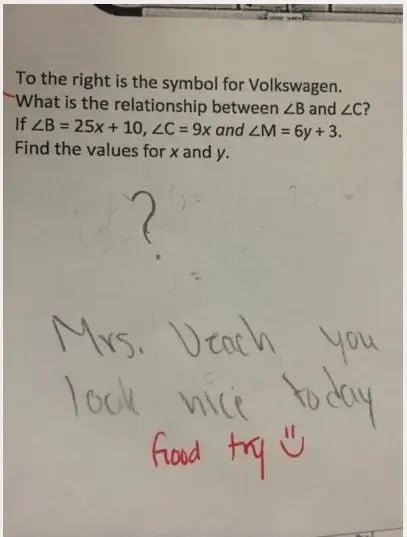 To the right is the symbol for Volkswagen.
What is the relationship between ∠B and ∠C?
If ∠B = 25x + 10, ∠C = 9x and ∠M = 6y + 3.
Find the values for x and y.
?
Mrs. Veach you
look nice today
Good try